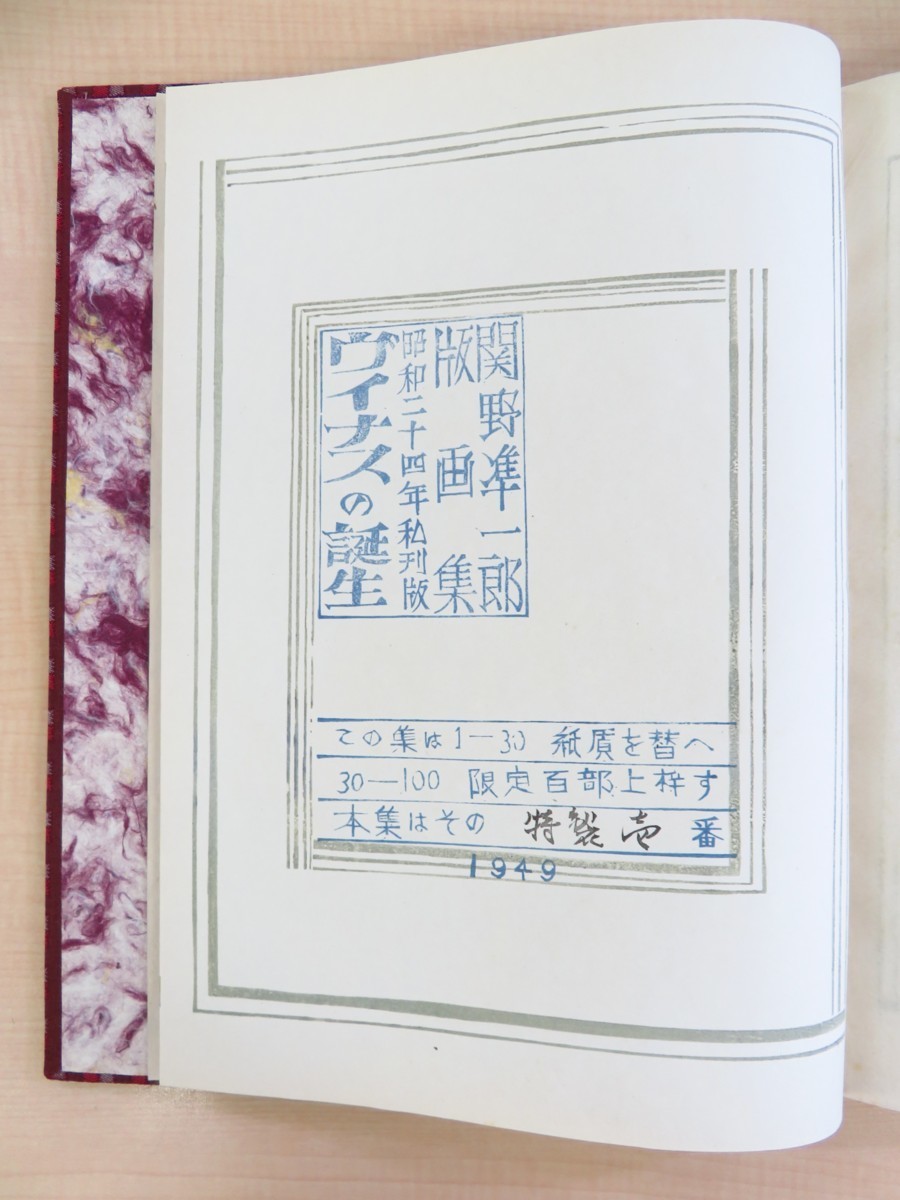 関野凖一郎
版画集
昭和二十四年私刊版
ヴイナスの誕生
この集は1—30 紙質を替へ
30—100 限定百部上梓す
本集はその 特製壱 番
1949